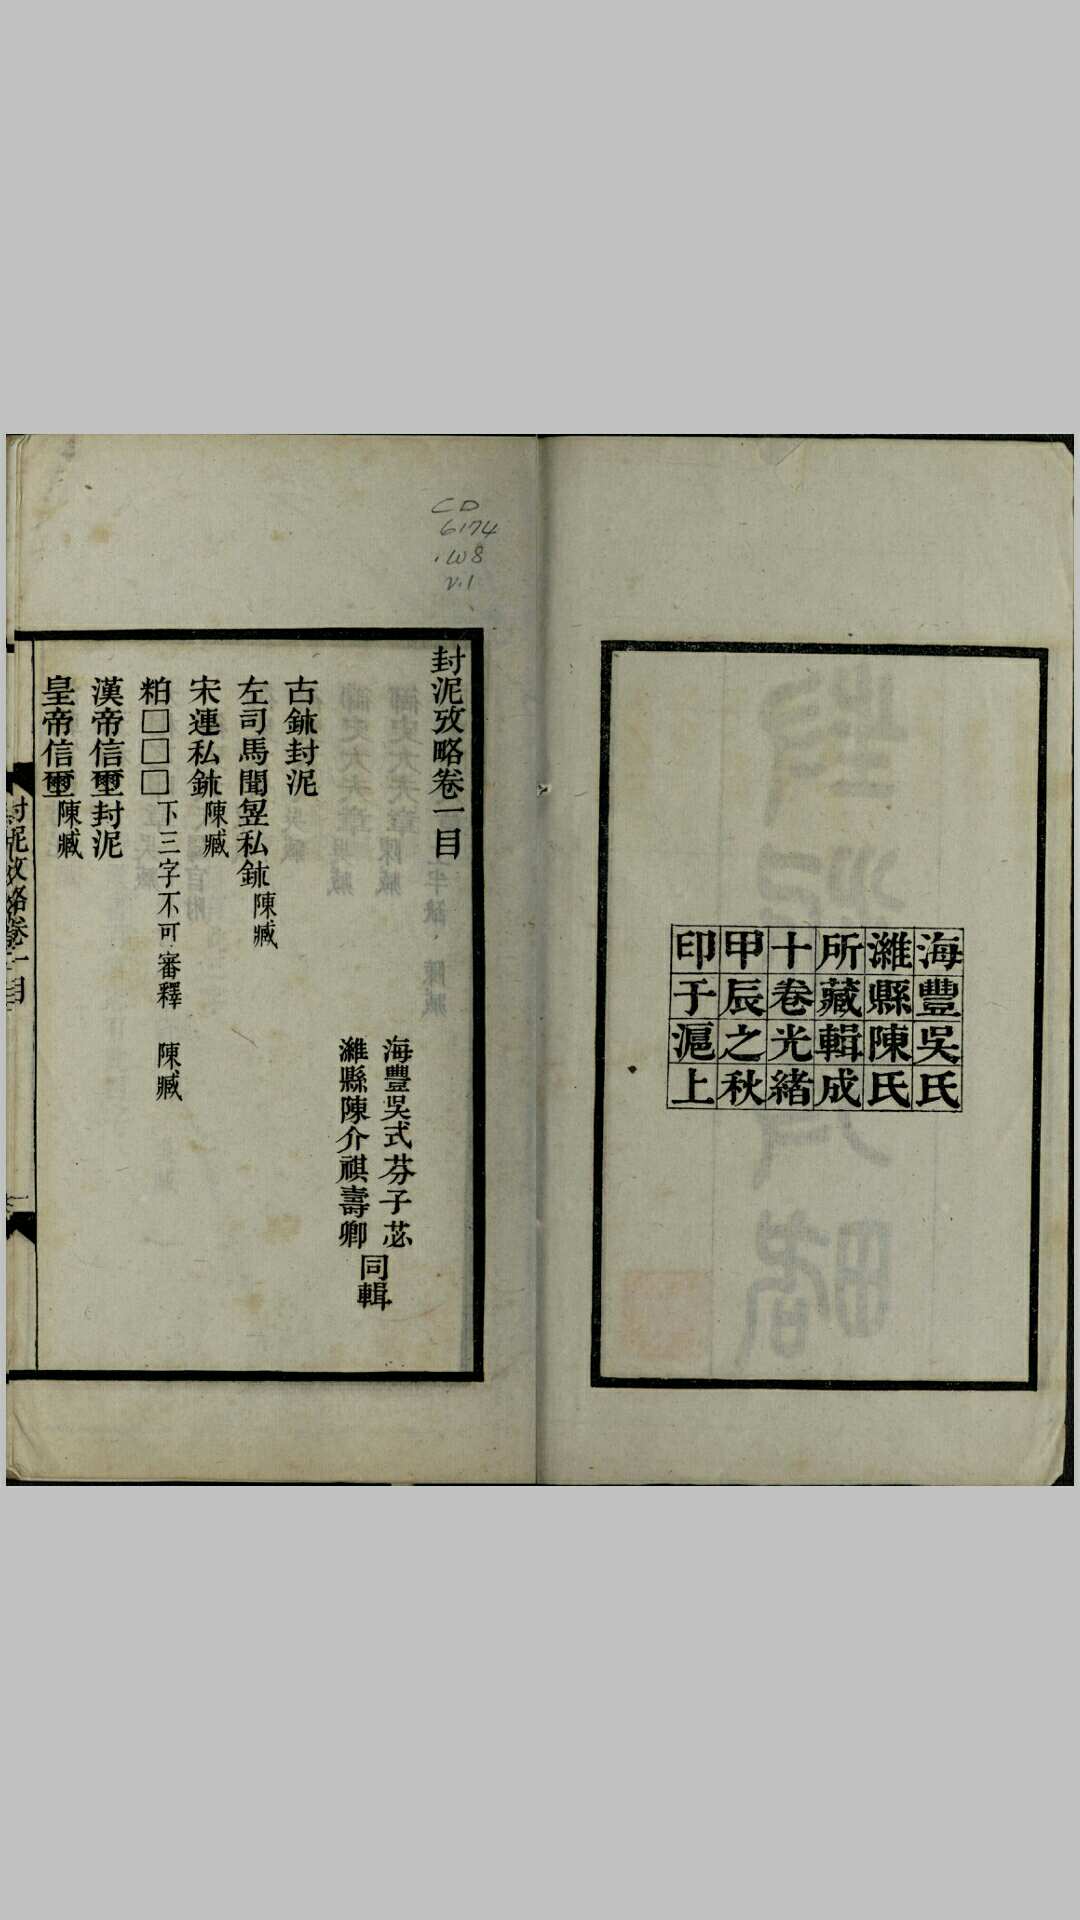 海豐吳氏
濰縣陳氏
所藏輯成
十卷光緒
甲辰之秋
印于滬上
CD
6174
.W8
v.1
封泥攷略卷一目
海豐吳式芬子苾
濰縣陳介祺壽卿
同輯
古鉨封泥
左司馬聞䍃私鉨 陳臧
宋連私鉨 陳臧
粕□□□ 下三字不可審釋 陳臧
漢帝信壐封泥
皇帝信壐 陳臧
封泥攷略卷一目
一